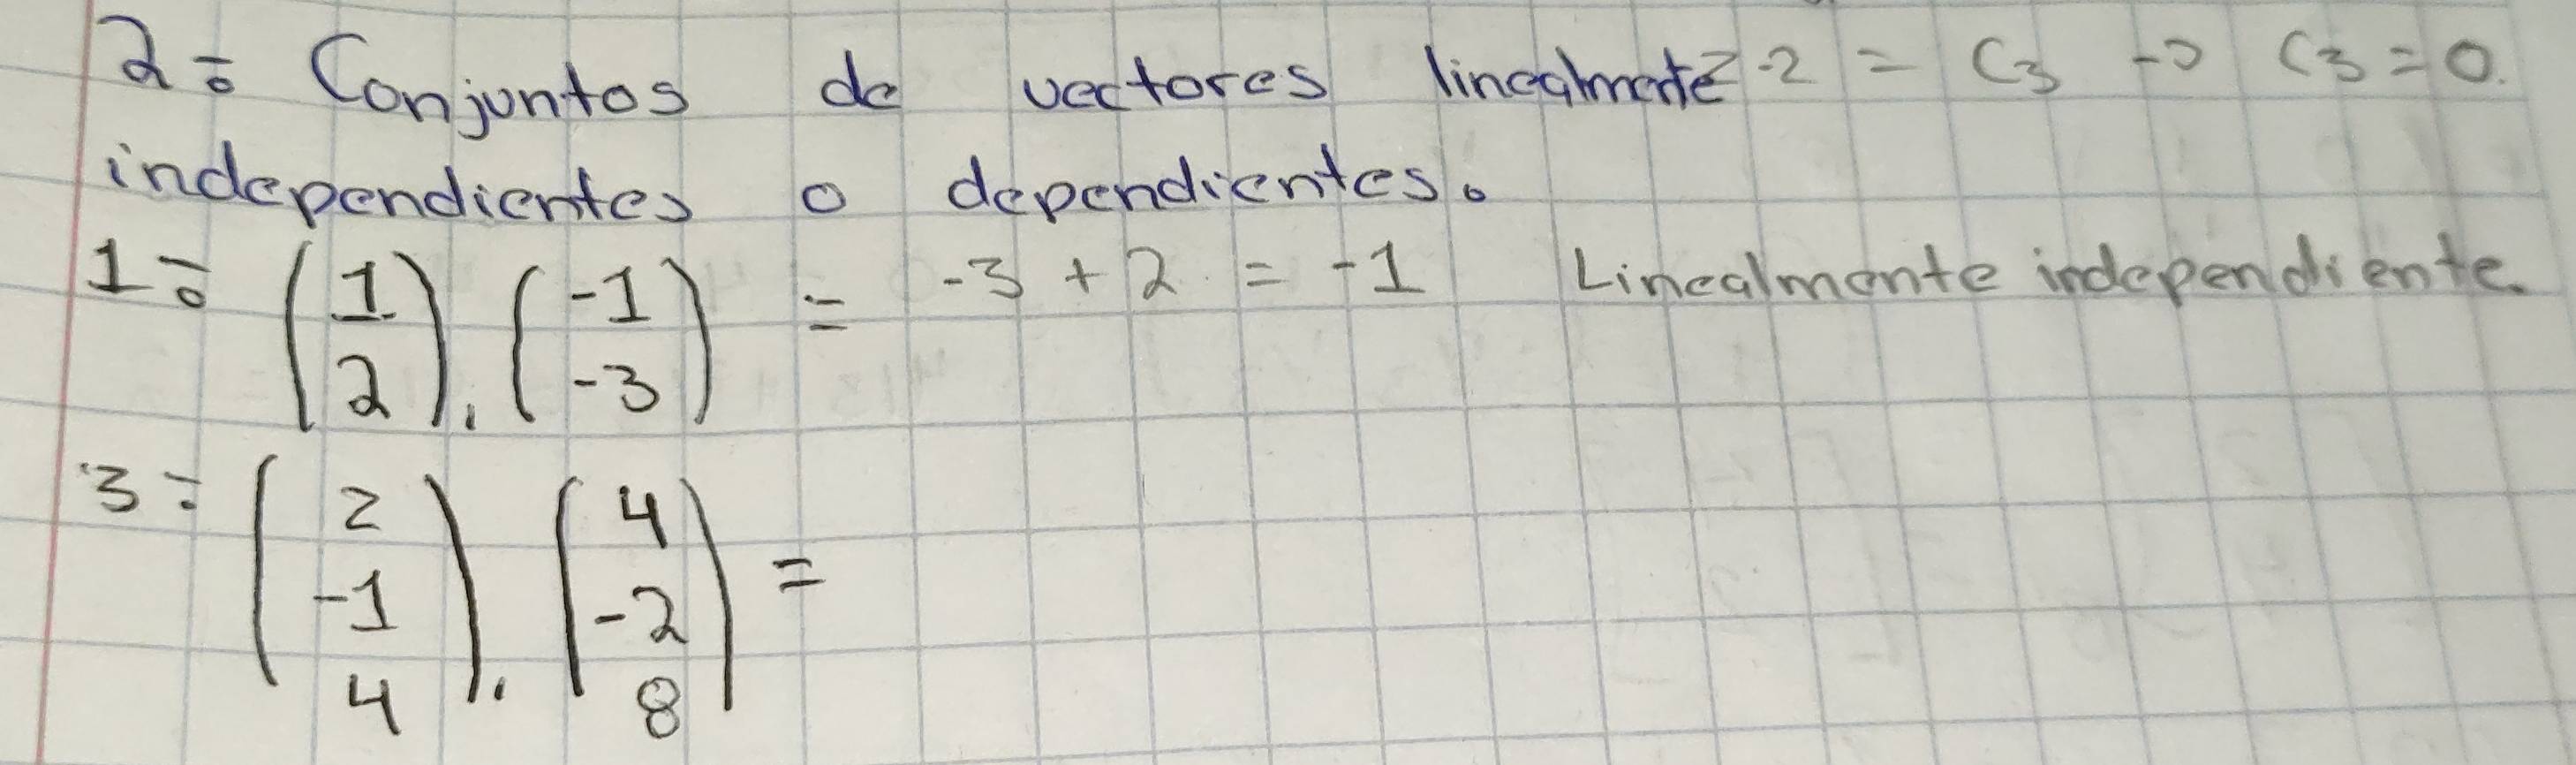 2= Conjuntos de vectores linealmente 2-2 = C3 -> C3=0.
independientes o dependientes.
1= (1 2), (-1 -3) = -3 + 2 = -1 Linealmente independiente.
3= (2 -1 4), (4 -2 8) =